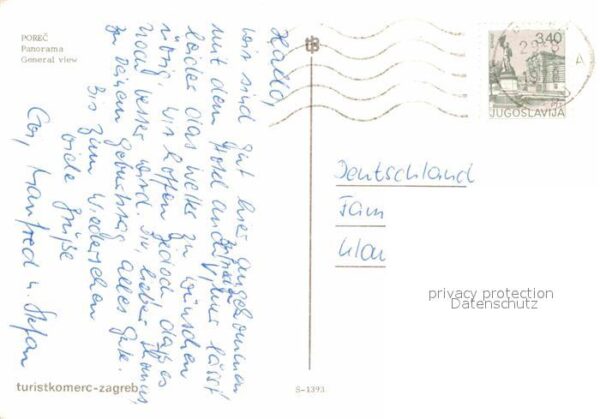 POREČ
Panorama
General view
Hallo,
wir sind gut hier angekommen
mit dem Hotel sind
leider das Wetter zu wünschen
übrig. Wir hoffen jedoch, daß es
noch besser wird. Dir, lieber Thomas,
zu Deinem Geburtstag alles Gute.
Bis zum Wiedersehen
viele Grüße
Manfred u. Stefan
turistkomerc-zagreb
S-1393
3.40
JUGOSLAVIJA
Deutschland
Fam
Klau
privacy protection
Datenschutz